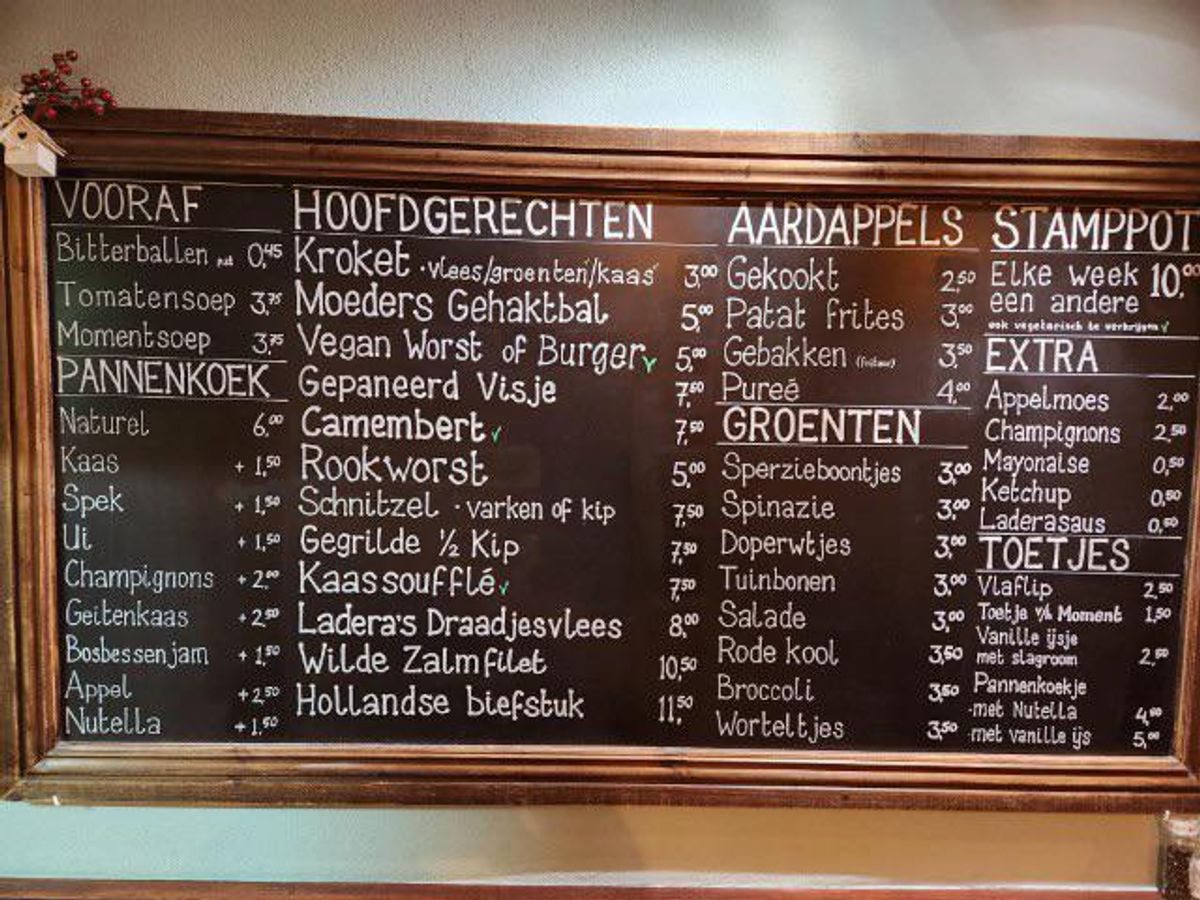 VOORAF
Bitterballen 0,45
Tomatensoep 3,75
Momentsoep 3,75
PANNENKOEK
Naturel 6,00
Kaas + 1,50
Spek + 1,50
Ui + 1,50
Champignons + 2,00
Geitenkaas + 2,50
Bosbessenjam + 1,50
Appel + 2,50
Nutella + 1,50
HOOFDGERECHTEN
Kroket · vlees/groenten/kaas 3,00
Moeders Gehaktbal 5,00
Vegan Worst of Burger 5,00
Gepaneerd Visje 7,50
Camembert 7,50
Rookworst 5,00
Schnitzel · varken of kip 7,50
Gegrilde ½ Kip 7,50
Kaassoufflé 7,50
Ladera's Draadjesvlees 8,00
Wilde Zalmfilet 10,50
Hollandse biefstuk 11,50
AARDAPPELS
Gekookt 2,50
Patat frites 3,00
Gebakken 3,50
Pureé 4,00
GROENTEN
Sperzieboontjes 3,00
Spinazie 3,00
Doperwtjes 3,00
Tuinbonen 3,00
Salade 3,00
Rode kool 3,50
Broccoli 3,50
Worteltjes 3,50
STAMPPOT
Elke week 10,00
een andere
ook vegetarisch te verkrijgen
EXTRA
Appelmoes 2,00
Champignons 2,50
Mayonaise 0,50
Ketchup 0,50
Laderasaus 0,50
TOETJES
Vlaflip 2,50
Toetje v/h Moment 1,50
Vanille ijsje
met slagroom 2,50
Pannenkoekje
·met Nutella 4,50
·met vanille ijs 5,00